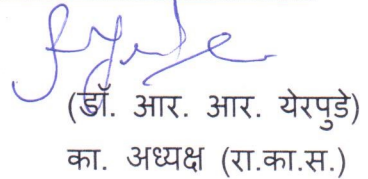 (डॉ. आर. आर. येरपुडे)
का. अध्यक्ष (रा.का.स.)